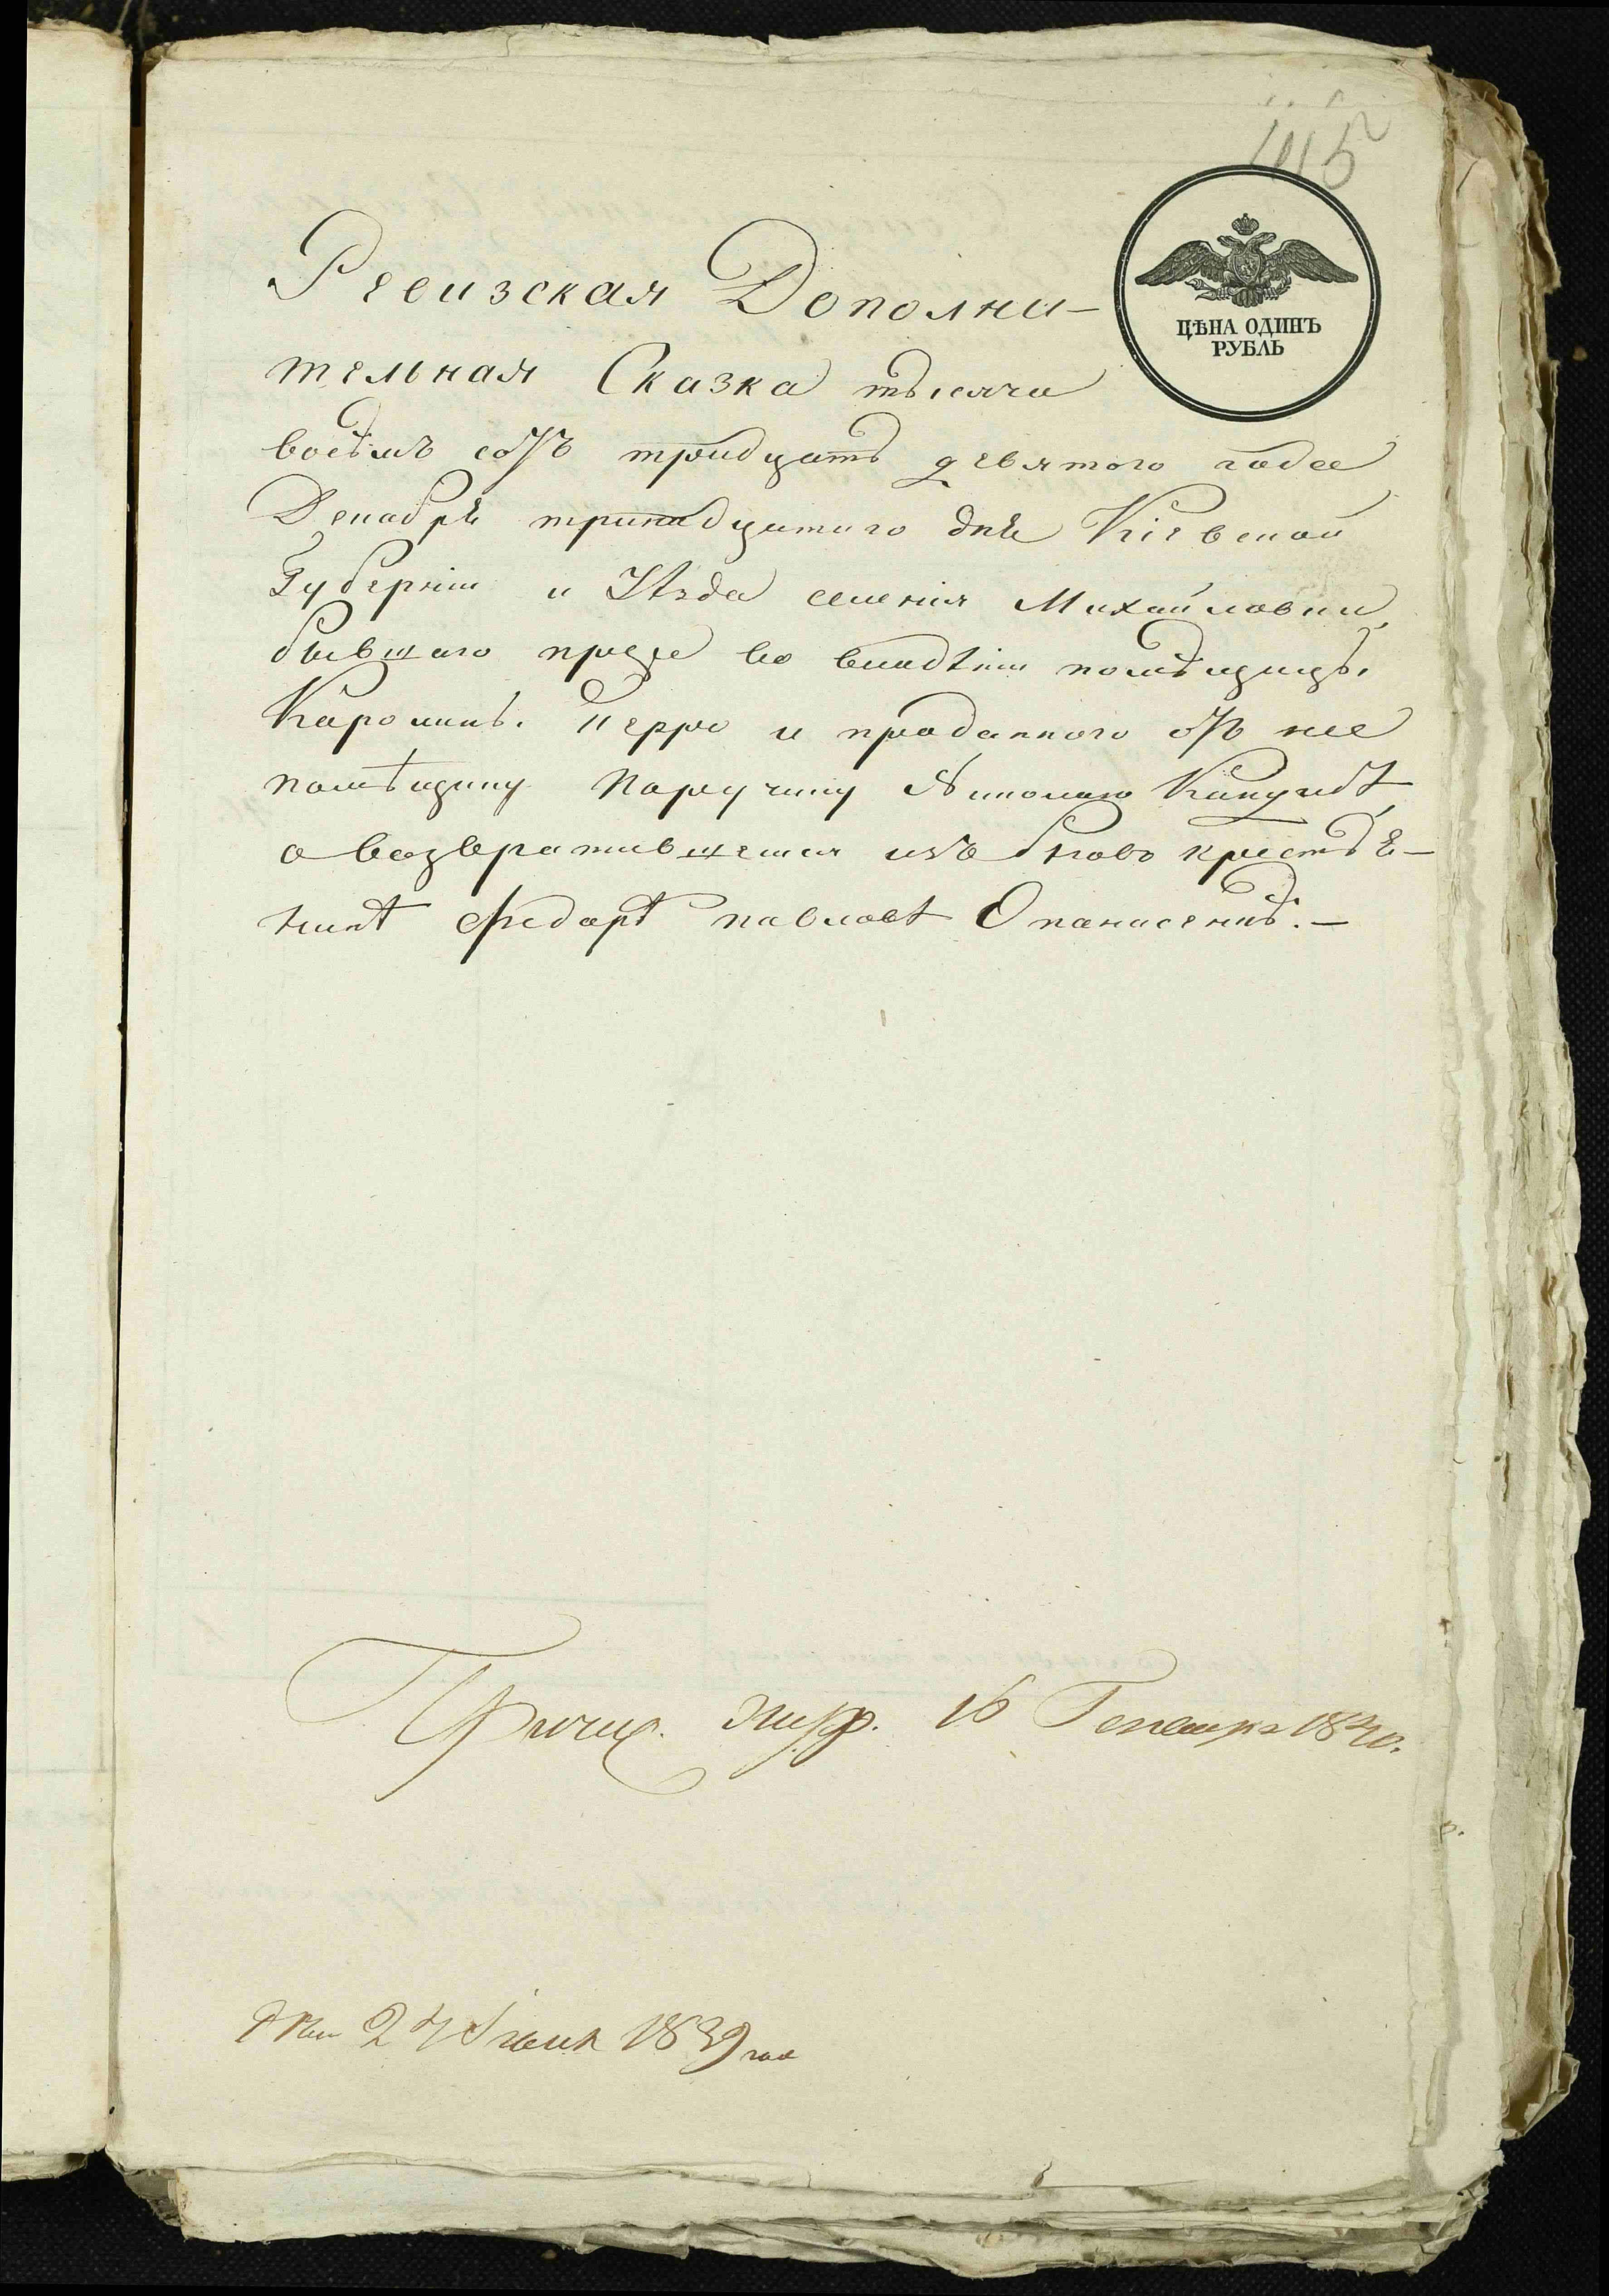 415
ЦѢНА ОДИНЪ
РУБЛЬ
Ревизская Дополни-
тельная Сказка тысяча
восѣмъ сотъ тридцать девятого года
Декабря тринадцатаго дня Кіевской
Губерніи и Уѣзда селенія Михайловки,
бывшаго прежде во владѣніи помѣщицы
Каролины Перро и проданного отъ нее
помѣщику Поручику Николаю
о возвратившемся изъ бѣгово крестья-
нинѣ Федорѣ павловѣ Опанасенкѣ.-
16 Генваря 1840.
27 1839 года